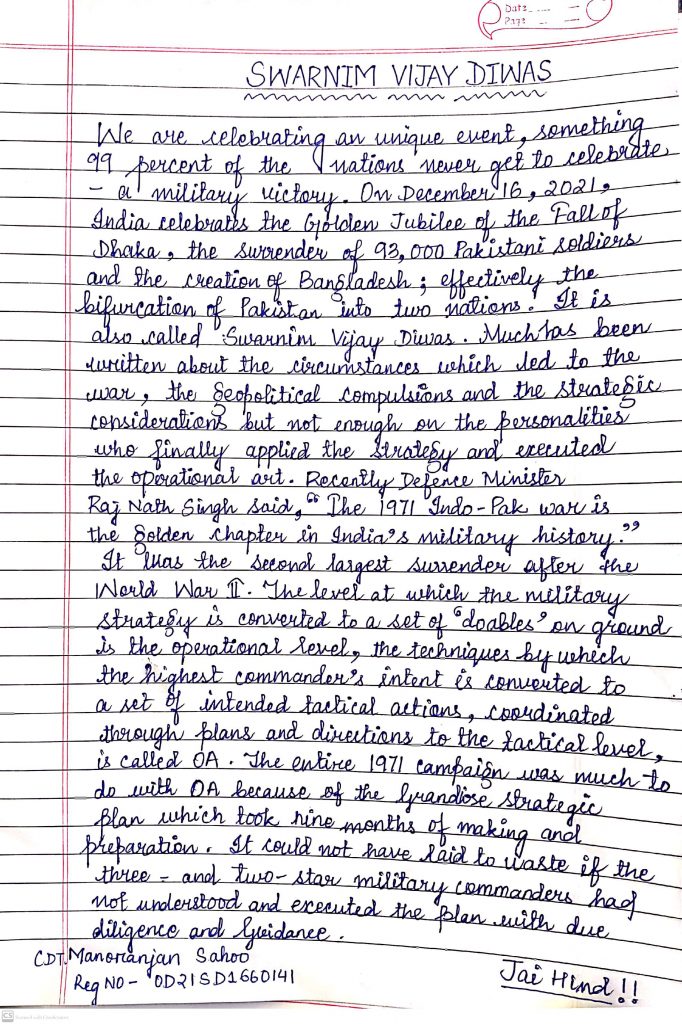 Date
Page
SWARNIM VIJAY DIWAS
We are celebrating an unique event, something
99 percent of the nations never get to celebrate,
- a military victory. On December 16, 2021,
India celebrates the Golden Jubilee of the Fall of
Dhaka, the surrender of 93,000 Pakistani soldiers
and the creation of Bangladesh; effectively the
bifurcation of Pakistan into two nations. It is
also called Swarnim Vijay Diwas. Much has been
written about the circumstances which led to the
war, the geopolitical compulsions and the strategic
considerations but not enough on the personalities
who finally applied the strategy and executed
the operational art. Recently Defence Minister
Raj Nath Singh said, "The 1971 Indo-Pak war is
the golden chapter in India's military history."
It was the second largest surrender after the
World War II. The level at which the military
strategy is converted to a set of "doables" on ground
is the operational level, the techniques by which
the highest commander's intent is converted to
a set of intended tactical actions, coordinated
through plans and directions to the tactical level,
is called OA. The entire 1971 campaign was much to
do with OA because of the grandiose strategic
plan which took nine months of making and
preparation. It could not have laid to waste if the
three - and two-star military commanders had
not understood and executed the plan with due
diligence and guidance.
CDT. Manoranjan Sahoo
Reg NO- OD21SD1660141
Jai Hind!!
CS Scanned with CamScanner